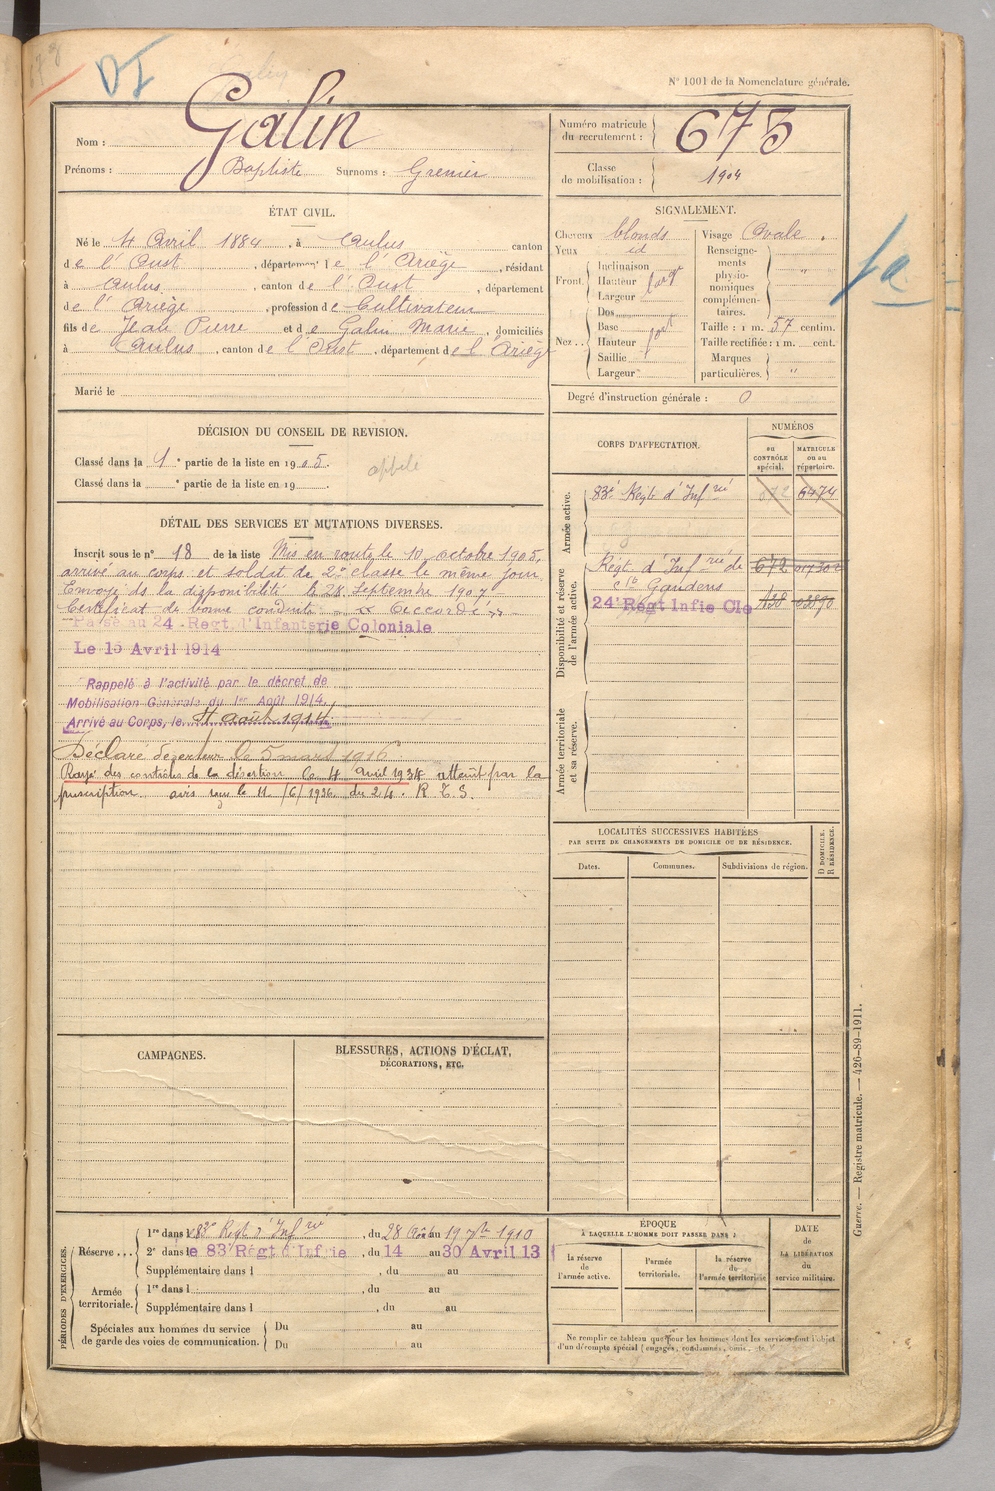 DI
N° 1001 de la Nomenclature générale.
Nom : Galin
Prénoms : Baptiste Surnoms : Grenier
Numéro matricule du recrutement : 673
Classe de mobilisation : 1904
ÉTAT CIVIL.
Né le 4 Avril 1884, à Aulus canton
de l'Oust, département de l'Ariège, résidant
à Aulus, canton de l'Oust, département
de l'Ariège, profession de Cultivateur
fils de Jean Pierre et de Galin Marie, domiciliés
à Aulus, canton de l'Oust, département de l'Ariège
Marié le
SIGNALEMENT.
Cheveux blonds
Yeux id
Front. Inclinaison
Hauteur large
Largeur
Nez. Dos
Base
Hauteur fort
Saillie
Largeur
Visage Ovale.
Renseignements physionomiques complémentaires. "
Taille : 1 m. 57 centim.
Taille rectifiée : 1 m. cent.
Marques particulières. "
Degré d'instruction générale : 0
DÉCISION DU CONSEIL DE REVISION.
Classé dans la 1e partie de la liste en 1905. appelé
Classé dans la e partie de la liste en 19
DÉTAIL DES SERVICES ET MUTATIONS DIVERSES.
Inscrit sous le n° 18 de la liste Mis en route le 10 octobre 1905,
arrivé au corps et soldat de 2e classe le même jour
Envoyé ds la disponibilité le 28 Septembre 1907
Certificat de bonne conduite " Accordé "
Passé au 24 Regt d'Infanterie Coloniale
Le 15 Avril 1914
Rappelé à l'activité par le décret de
Mobilisation Générale du 1er Août 1914.
Arrivé au Corps, le 4 août 1914
Déclaré déserteur le 5 mars 1916
Rayé des contrôles de la désertion le 4 Avril 1934 atteint par la
prescription avis reçu le 11/6/1936 du 24. R T S.
CORPS D'AFFECTATION.
NUMÉROS
au CONTRÔLE spécial.
MATRICULE ou au répertoire.
Armée active.
83e Régt d'Infrie 672 6474
Disponibilité et réserve de l'armée active.
Régt d'Infrie de St Gaudens 672
24e Régt Infie Cle
Armée territoriale et sa réserve.
LOCALITÉS SUCCESSIVES HABITÉES
PAR SUITE DE CHANGEMENTS DE DOMICILE OU DE RÉSIDENCE.
Dates.
Communes.
Subdivisions de région.
D DOMICILE. R RÉSIDENCE.
CAMPAGNES.
BLESSURES, ACTIONS D'ÉCLAT,
DÉCORATIONS, ETC.
PÉRIODES D'EXERCICES.
Réserve... 1re dans le 83e Régt d'Infrie, du 28 Août au 19 7bre 1910
2e dans le 83e Régt d'Infrie, du 14 au 30 Avril 13
Supplémentaire dans l , du au
Armée territoriale. 1re dans l , du au
Supplémentaire dans l , du au
Spéciales aux hommes du service de garde des voies de communication. Du au
Du au
ÉPOQUE
À LAQUELLE L'HOMME DOIT PASSER DANS :
la réserve de l'armée active.
l'armée territoriale.
la réserve de l'armée territoriale
DATE de LA LIBÉRATION du service militaire.
Ne remplir ce tableau que pour les hommes dont les services font l'objet
d'un décompte spécial (engagés, condamnés, omis, etc.)
Guerre. — Registre matricule. — 426-89-1911.